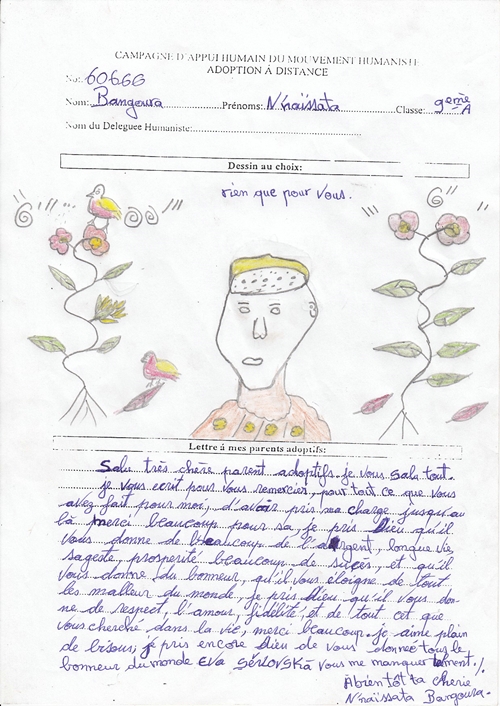 CAMPAGNE D'APPUI HUMAIN DU MOUVEMENT HUMANISTE
ADOPTION À DISTANCE
No: 60666
Nom: Bangoura Prénoms: N'naïssata Classe: 9ème A
Nom du Deleguee Humaniste:
Dessin au choix:
rien que pour vous.
Lettre à mes parents adoptifs:
Salu très chere parent adoptifs je vous salu tout.
je vous ecrit pour vous remercier, pour tout ce que vous
avez fait pour moi, d'avoir pris ma charge jusqu'au
là merci beaucoup pour sa, je pris Dieu qu'il
vous donne de beaucoup de l'argent, longue vie,
sagesse, prosperité beaucoup de suces, et qu'il
vous donne du bonneur, qu'il vous eloigne de tout
les malleur du monde, je pris Dieu qu'il vous don-
ne de respect, l'amour, fidélité, et de tout cet que
vous cherché dans la vie, merci beaucoup. je aime plain
de bisous, je pris encore Dieu de vous donnee tous le
bonneur du monde Eva vous me manques
Abientôt ta cherie
N'naïssata Bangoura.